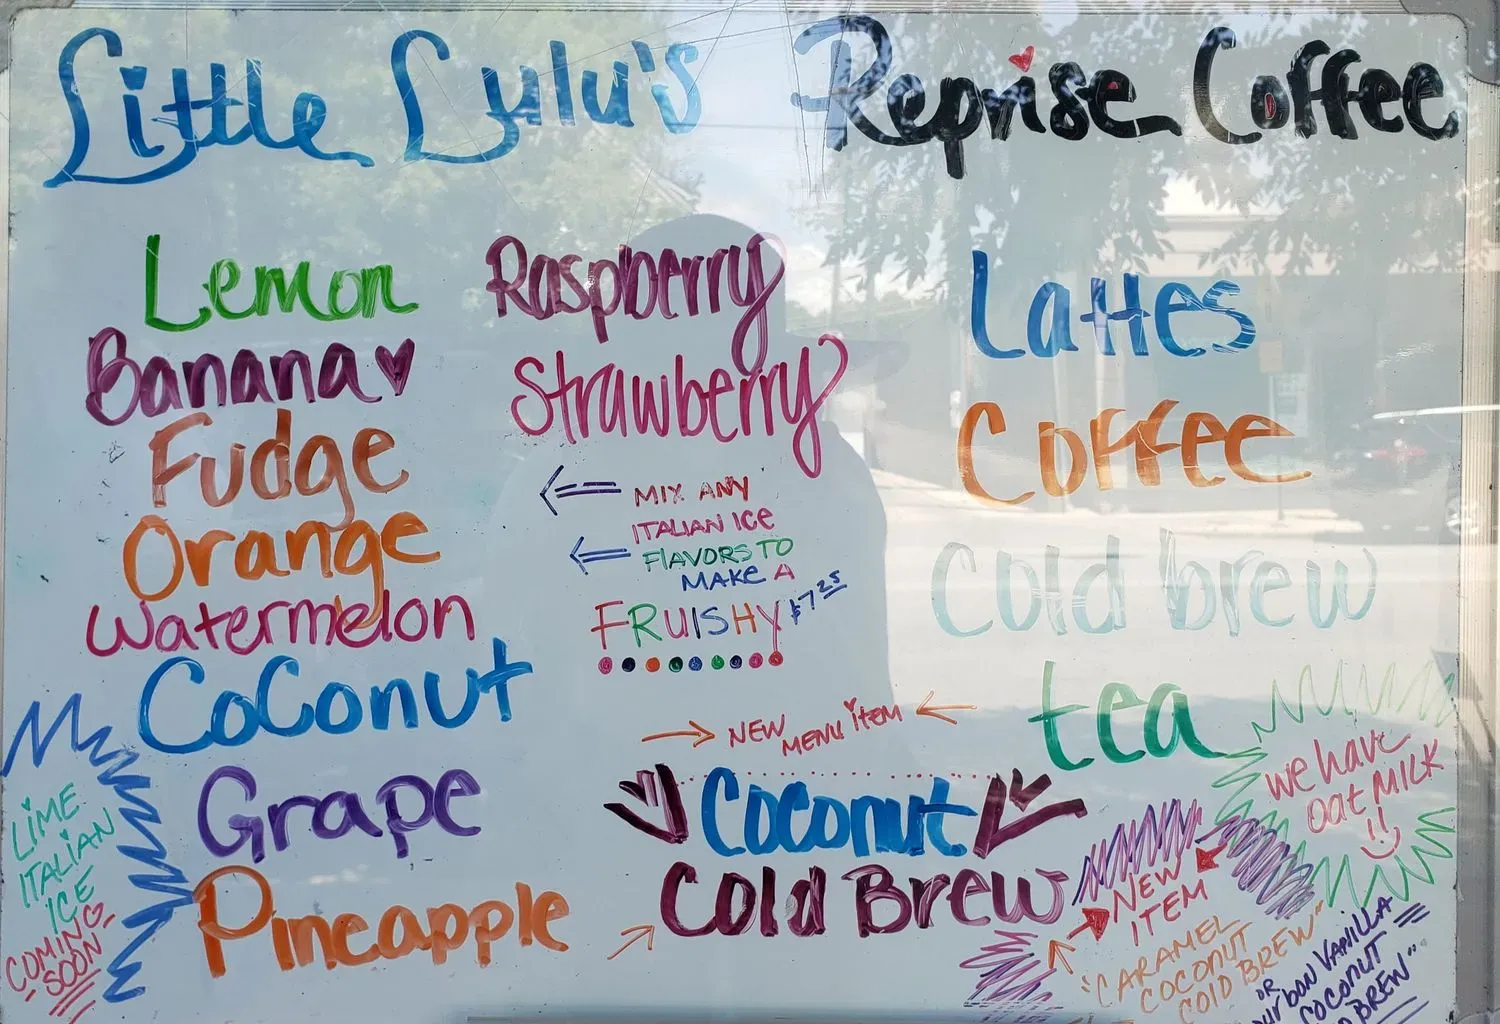 Little Lulu's
Reprise Coffee
Lemon
Banana
Fudge
Orange
Watermelon
Coconut
Grape
Pineapple
LIME
ITALIAN
ICE
COMING
SOON
Raspberry
Strawberry
MIX ANY
ITALIAN ICE
FLAVORS TO
MAKE A
FRUISHY $7.25
NEW
MENU ITEM
Coconut
Cold Brew
Lattes
Coffee
Cold brew
tea
we have
oat MILK
!!
NEW
ITEM
"CARAMEL
COCONUT
COLD BREW"
OR
VANILLA
COCONUT
BREW"